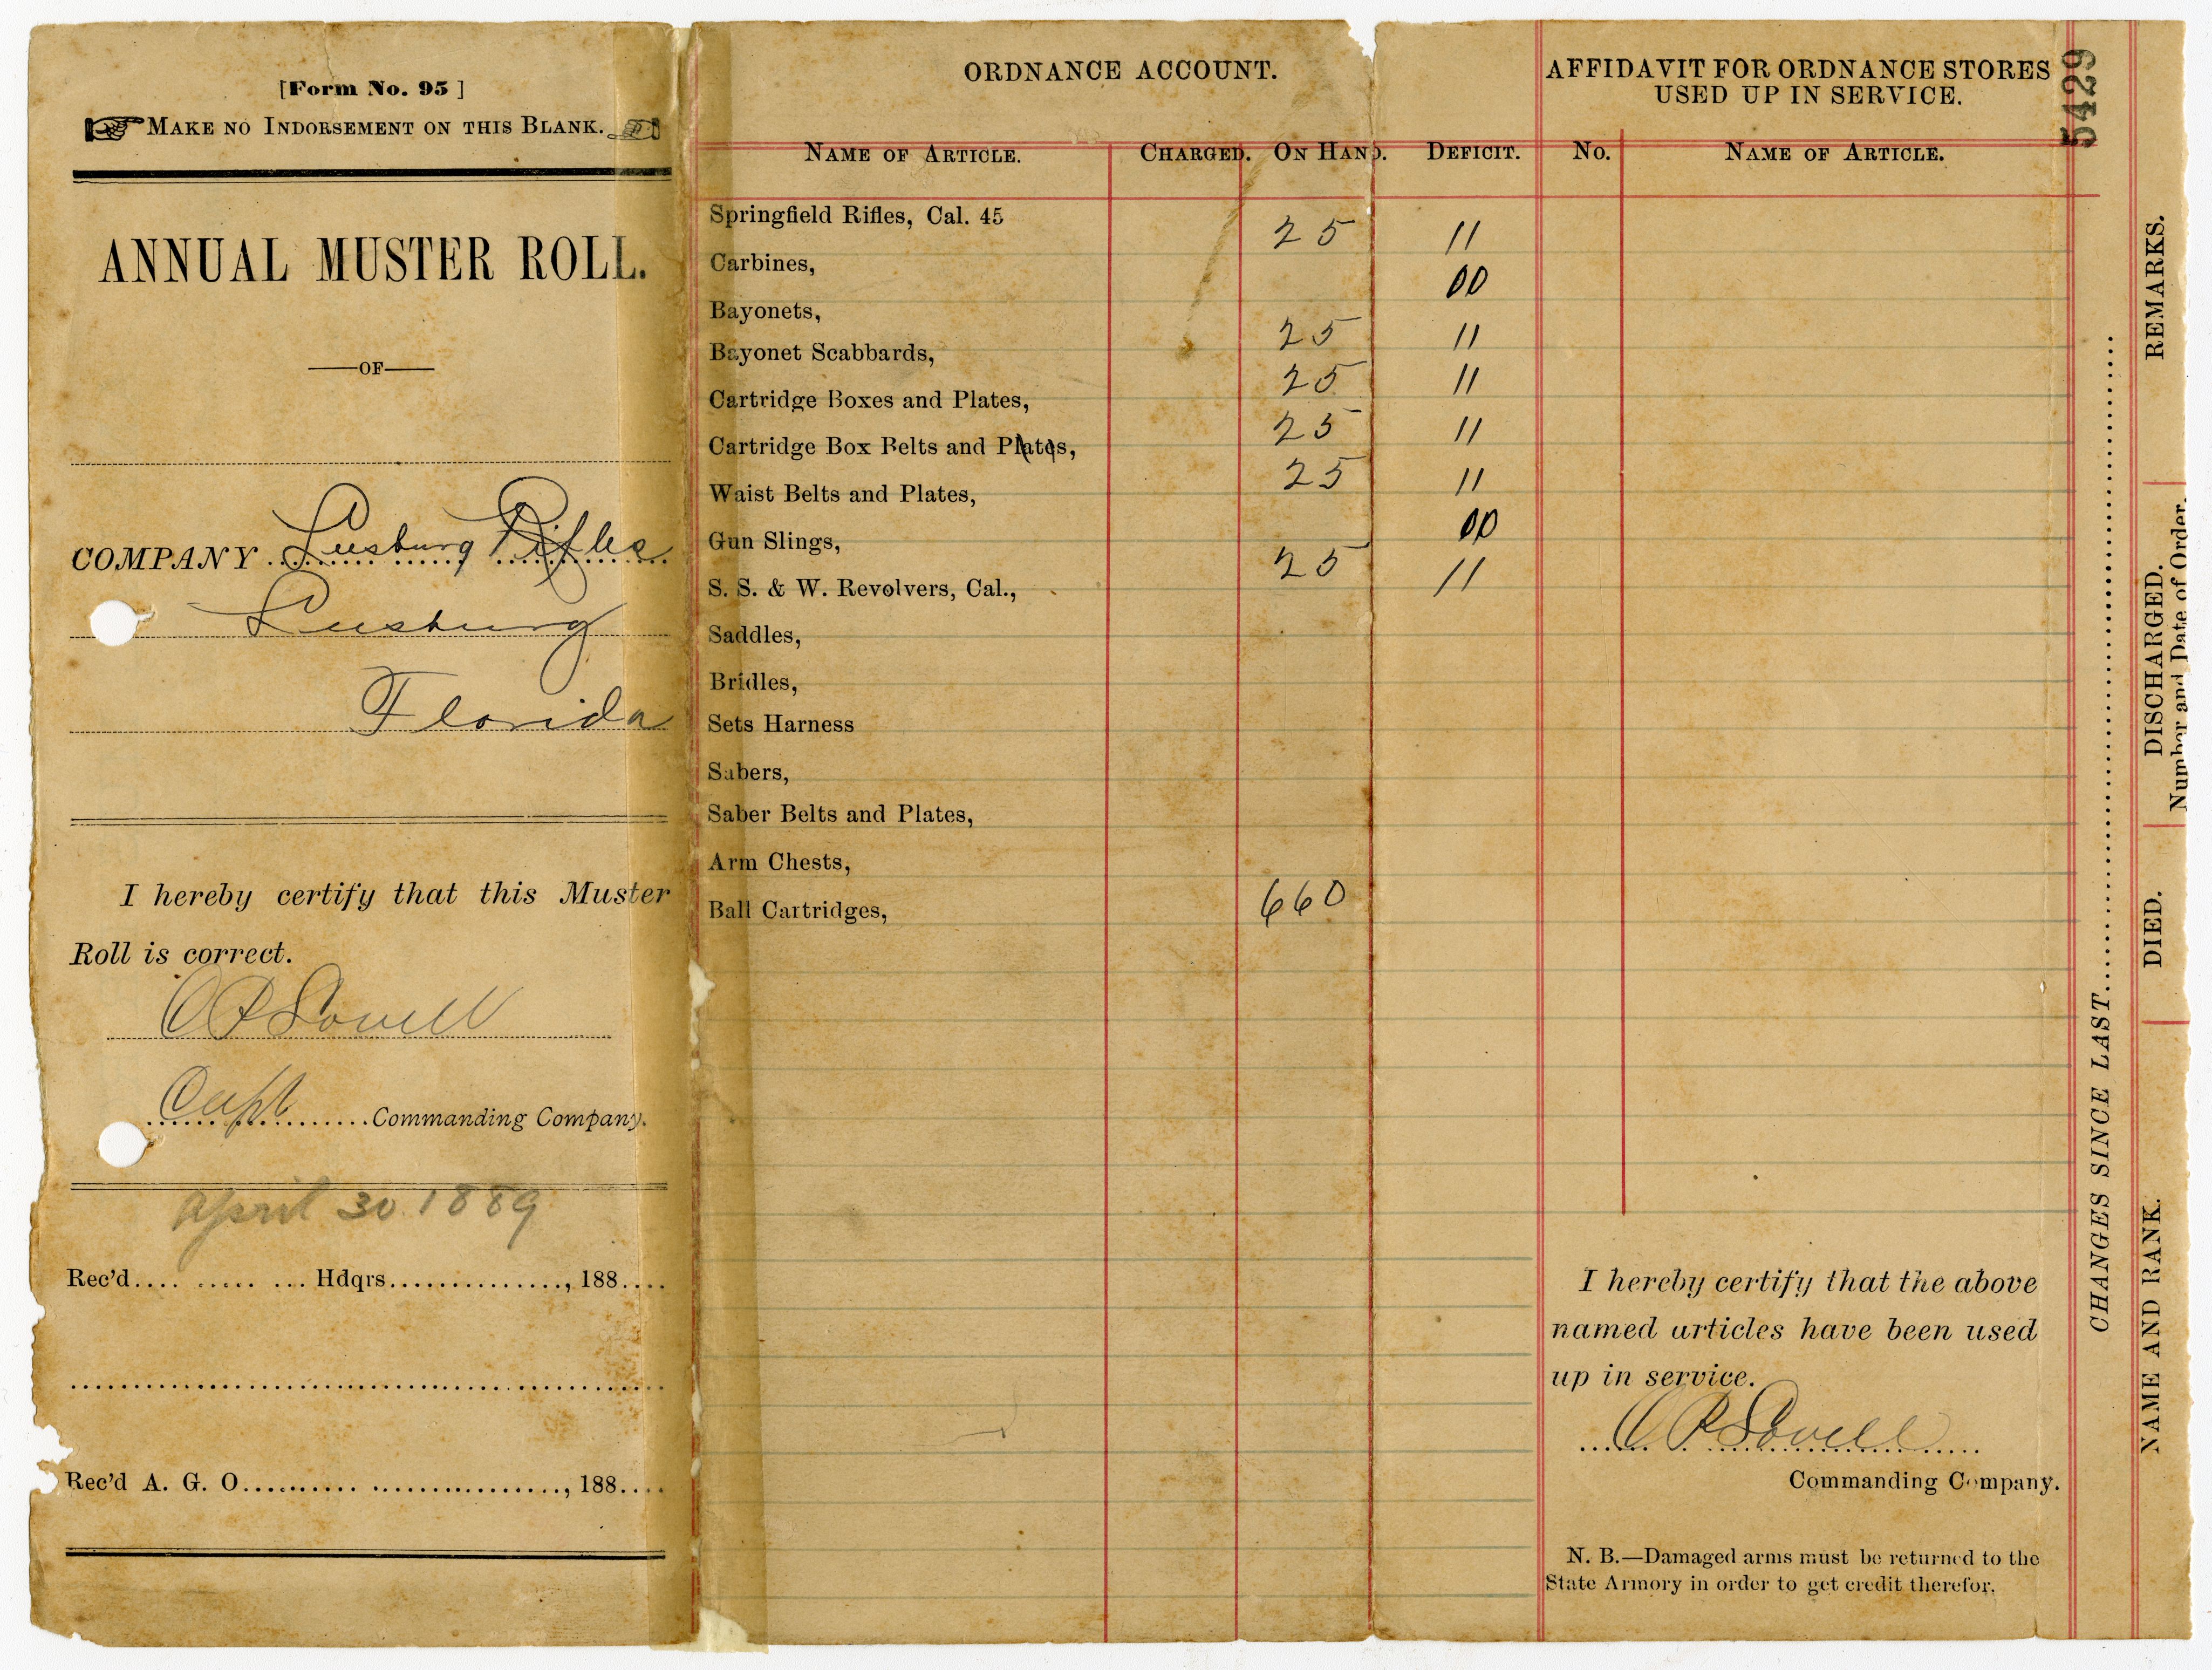 [Form No. 95 ]
MAKE NO INDORSEMENT ON THIS BLANK.
ANNUAL MUSTER ROLL.
—OF—
COMPANY Leesburg Rifles
Leesburg
Florida
I hereby certify that this Muster
Roll is correct.
Capt Commanding Company.
April 30 1889
Rec'd.... ..... ... Hdqrs..............., 188....
Rec'd A. G. O.......... ................., 188....
ORDNANCE ACCOUNT.
NAME OF ARTICLE. CHARGED. ON HAND. DEFICIT.
Springfield Rifles, Cal. 45 25 11
Carbines, 00
Bayonets, 25 11
Bayonet Scabbards, 25 11
Cartridge Boxes and Plates, 25 11
Cartridge Box Belts and Plates, 25 11
Waist Belts and Plates, 00
Gun Slings, 25 11
S. S. & W. Revolvers, Cal.,
Saddles,
Bridles,
Sets Harness
Sabers,
Saber Belts and Plates,
Arm Chests,
Ball Cartridges, 660
AFFIDAVIT FOR ORDNANCE STORES
USED UP IN SERVICE.
No. NAME OF ARTICLE.
I hereby certify that the above
named articles have been used
up in service.
Commanding Company.
N. B.—Damaged arms must be returned to the
State Armory in order to get credit therefor.
5429
CHANGES SINCE LAST
NAME AND RANK.
DIED.
DISCHARGED.
Number and Date of Order.
REMARKS.